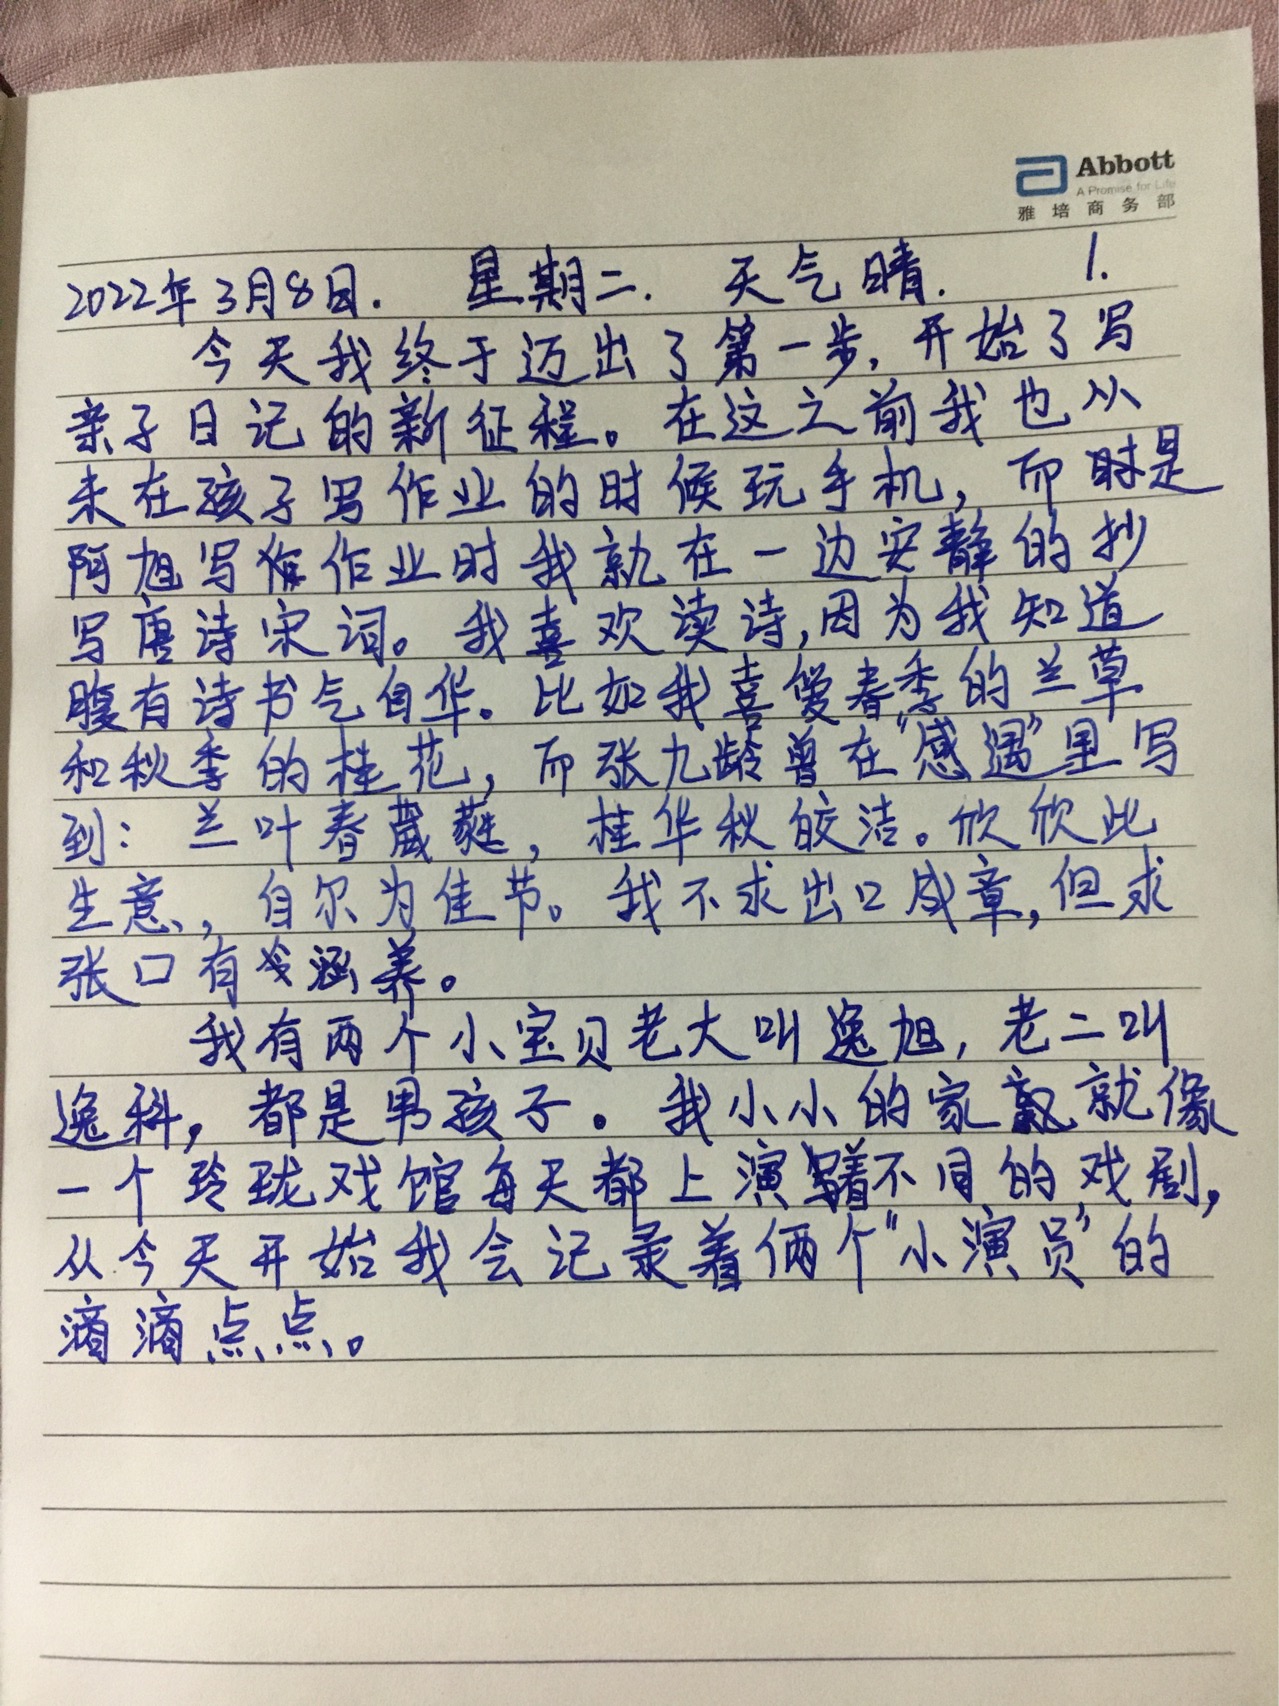 Abbott
A Promise for Life
雅培商务部
2022年3月8日. 星期二. 天气晴. 1.
今天我终于迈出了第一步,开始了写
亲子日记的新征程。在这之前我也从
未在孩子写作业的时候玩手机,而时是
阿旭写作业时我就在一边安静的抄
写唐诗宋词。我喜欢读诗,因为我知道
腹有诗书气自华。比如我喜爱春季的兰草
和秋季的桂花,而张九龄曾在“感遇”里写
到:兰叶春葳蕤,桂华秋皎洁。欣欣此
生意,自尔为佳节。我不求出口成章,但求
张口有涵养。
我有两个小宝贝老大叫逸旭,老二叫
逸科,都是男孩子。我小小的家就像
一个玲珑戏馆每天都上演着不同的戏剧,
从今天开始我会记录着俩个“小演员”的
滴滴点点。